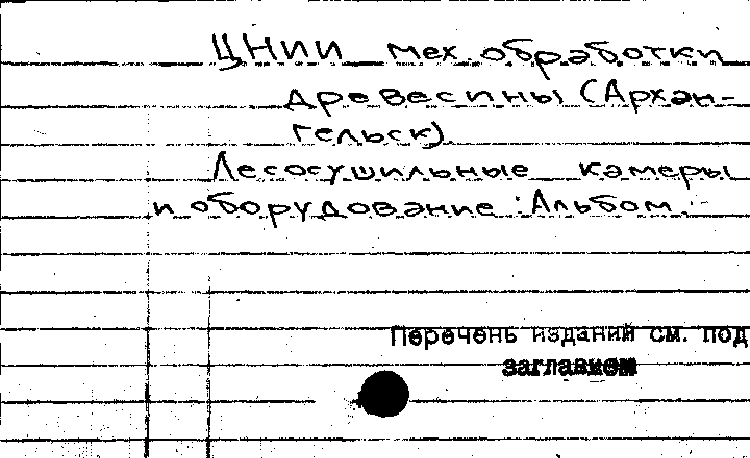 ЦНИИ мех. обработки
древесины (Архан-
гельск).
Лесосушильные камеры
и оборудование : Альбом. -
Перечень изданий см. под
заглавием